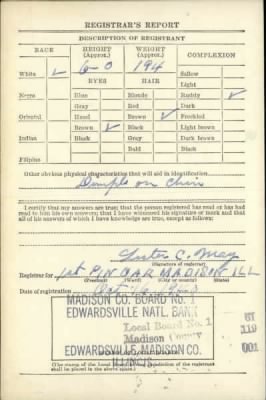 REGISTRAR'S REPORT
DESCRIPTION OF REGISTRANT
RACE HEIGHT (Approx.) WEIGHT (Approx.) COMPLEXION
White ✓ 6-0 194 Sallow
EYES HAIR Light
Negro Blue Blonde Ruddy ✓
Gray Red Dark
Oriental Hazel Brown ✓ Freckled
Brown ✓ Black Light brown
Indian Black Gray Dark brown
Bald Black
Filipino
Other obvious physical characteristics that will aid in identification
Dimple on Chin
I certify that my answers are true; that the person registered has read or has had
read to him his own answers; that I have witnessed his signature or mark and that
all of his answers of which I have knowledge are true, except as follows:
(Signature of registrar)
Registrar for 1st PIN OAK MADISON ILL
(Precinct) (Ward) (City or county) (State)
Date of registration Oct. 16
MADISON CO. BOARD NO. 1
EDWARDSVILLE NATL. BANK
Local Board No. 1
Madison County
EDWARDSVILLE, MADISON CO.
ILLINOIS
119
001
(The stamp of the Local Board
of the registrant
shall be placed in the above space.)